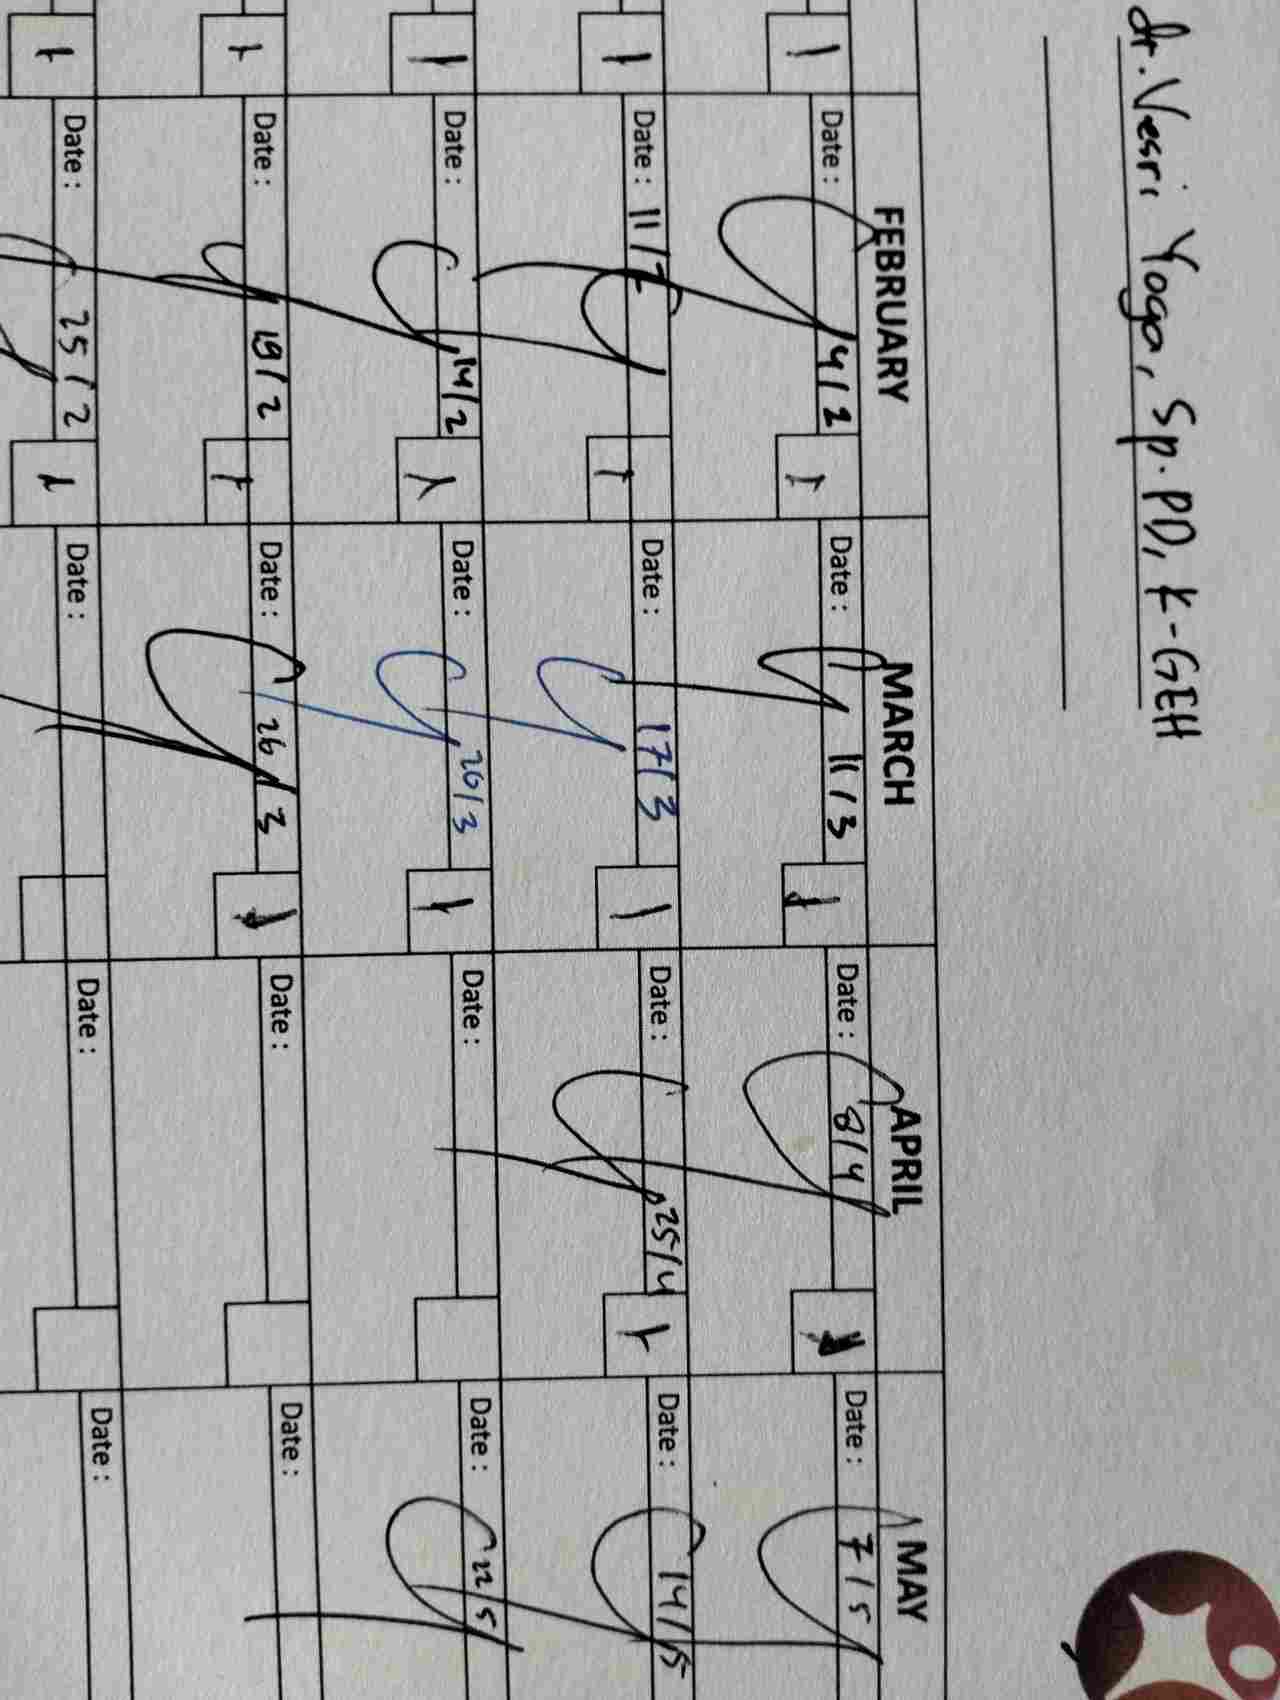 dr. Vesri Yoga, Sp.PD, K-GEH
FEBRUARY MARCH APRIL MAY
1
Date: 4/2 1 Date: 11/3 1 Date: 8/4 Date: 7/5
1
Date: 11/2 1 Date: 17/3 1 Date: 25/4 1 Date: 14/5
1
Date: 14/2 1 Date: 26/3 1 Date: Date: 22/5
1
Date: 19/2 1 Date: 26/3 1 Date: Date:
1
Date: 25/2 1 Date: Date: Date: